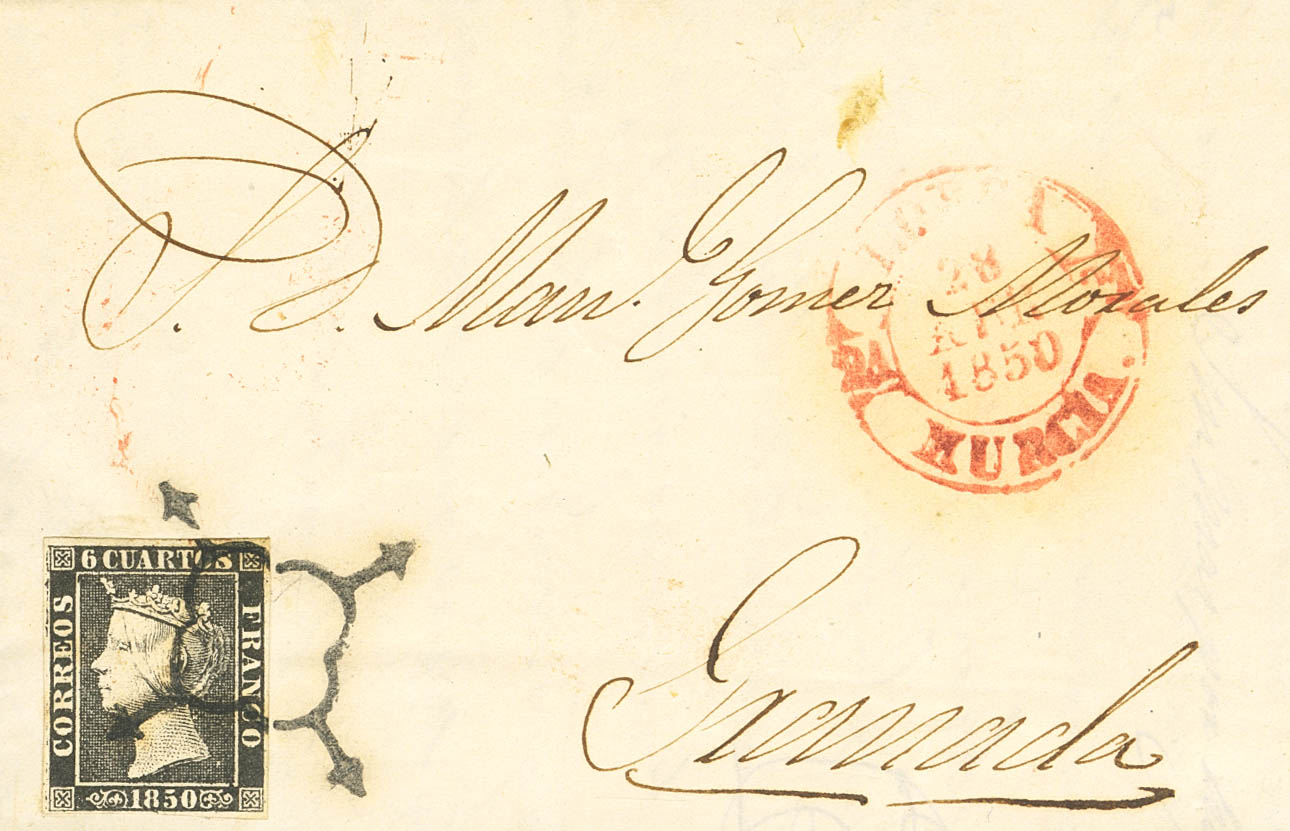 S. D. Man. Gomez Morales
LORCA
28
APR
1850
MURCIA.
Granada
6 CUARTOS
CORREOS
FRANCO
1850